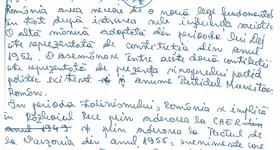 România avea nevoie de o nouă lege fundamentală
în stat după intrarea sub influența sovietică
O altă măsură adoptată din perioada lui Dej
este reprezentată de constituția din anul
1952. O asemănare între aceste două constituții
este reprezentată de prezența singurului partid
politic existent și anume Partidul Muncitoresc
Român.
În perioada stalinismului, România se implică
în Războiul Rece prin aderarea la CAER
anul 1949 și prin aderarea la Pactul de
la Varșovia din anul 1955, evenimente care